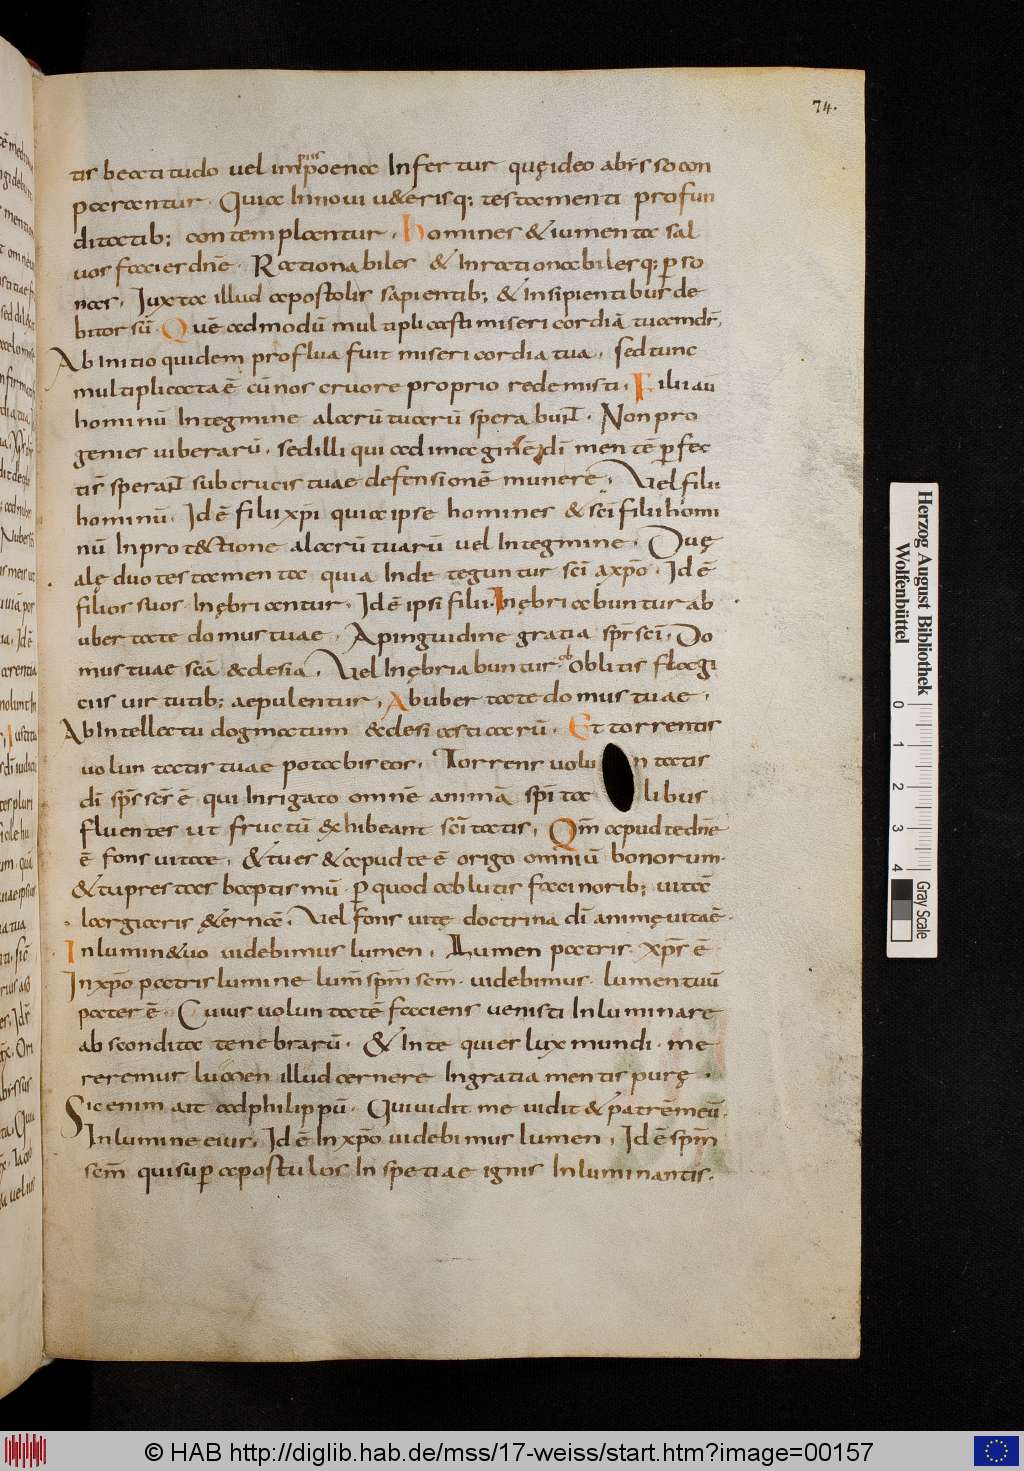 74.
tis beatitudo vel impiis poenae Infertur quę ideo abissο con
parantur. Quia In novi u&erisq; testamenti profun
ditatib; contemplantur. homines & iumenta sal
uos facies dnē. Rationabiles & Inrationabilesq; pso
nas. Iuxta illud apostolis sapientib; & insipientibus de
bitor sū. Quē admodū multiplicasti misericordiā tuam dš,
Ab Initio quidem proflua fuit misericordia tua. sed tunc
multiplicata ē cū nos cruore proprio redemisti. Filii au
hominū In tegmine alarū tuarū sperabunt. Non pro
genies viperarū. sed illi qui ad imaginē di mentē pfec
tis sperant sub crucis tuae defensionē munere. Vel filii
hominū. Id ē filii xpi quia ipse homines & sci filii homi
nū In prot&tione alarū tuarū vel In tegmine. Duę
alę duo testamenta quia Inde teguntur sci a xpo. Id ē
filios suos. Inębriantur. Id ē ipsi filii. Inębriabuntur ab
ubertate domus tuae. A pinguidine gratia sps sci. Do
mus tuae scā &clesia. Vel Inębriabuntur ob oblitis flagi
ciis virtutib; aepulentur. Ab ubertate domus tuae.
Ab Intellectu dogmatum &clesiasticarū. Et torrentis
uoluntatis tuae potabis eos. Torrens volun tatis
di sps scs ē qui Inrigato omnē animā spi ta libus
fluentes ut fructū exhibeant sci tatis. Qm apud te dnē
ē fons vitae. & tu es & apud te ē origo omniū bonorum.
& tu prestas baptismū. p quod ablutis facinorib; vitae
largiaris &ernae. Vel fons vitę doctrina di animę vita ē.
In lumin& uo videbimus lumen. Lumen patris xps ē
In xpo patris lumine lum spm scm videbimus. lumen tuū
pater ē. Cuius voluntatē faciens venisti Inluminare
abscondita tenebrarū. & In te qui es lux mundi. me
reremur lumen illud cernere In gratia mentis purę.
Sic enim ait ad philippū. Qui vidit me vidit & patrē meū.
In lumine eius. Id ē In xpo videbimus lumen. Id ē spm
scm qui sup apostulos In spetiae ignis Inluminantis.
Herzog August Bibliothek
Wolfenbüttel
0 1 2 3 4
Gray Scale
© HAB http://diglib.hab.de/mss/17-weiss/start.htm?image=00157